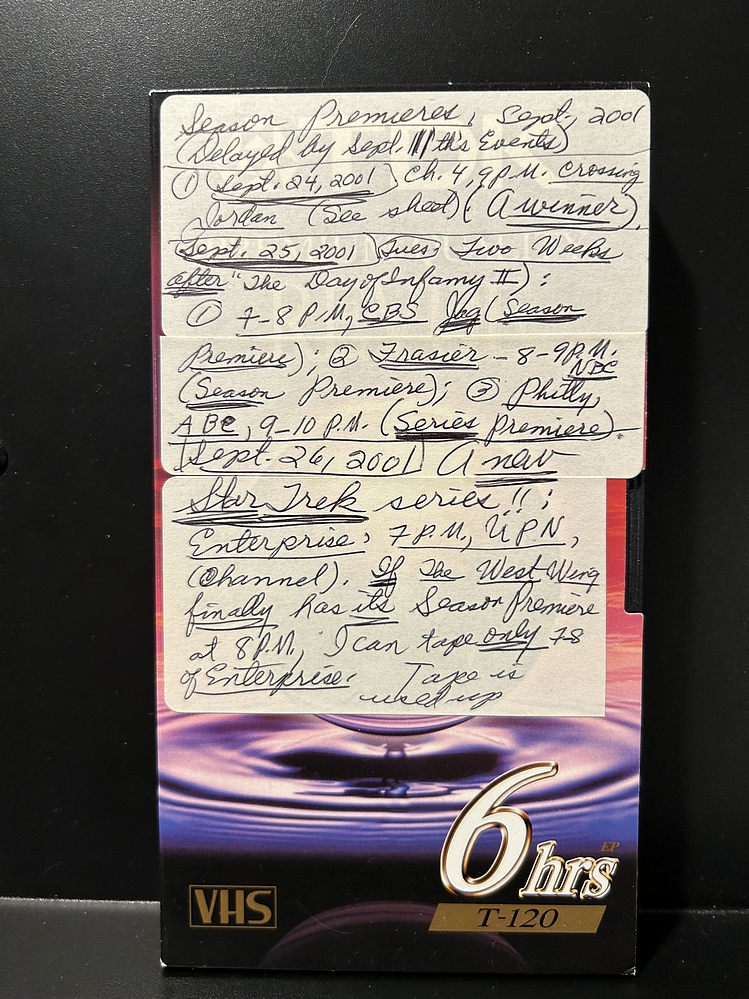 Season Premieres, Sept., 2001
(Delayed by Sept. 11th's Events)
① (Sept. 24, 2001) Ch. 4, 9 P.M. Crossing
Jordan (See sheet) (A winner).
(Sept. 25, 2001) (Tues) Two Weeks
after "The Day of Infamy II):
① 7-8 P.M, CBS Jag (Season
Premiere); ② Frasier - 8-9 P.M.
NBC
(Season Premiere); ③ Philly,
ABC, 9-10 P.M. (Series Premiere).
[Sept. 26, 2001] A new
Star Trek series!!:
Enterprise, 7 P.M., UPN,
(Channel). If The West Wing
finally has its Season Premiere
at 8 P.M., I can tape only 7-8
of Enterprise. Tape is
used up
6 hrs
EP
T-120
VHS